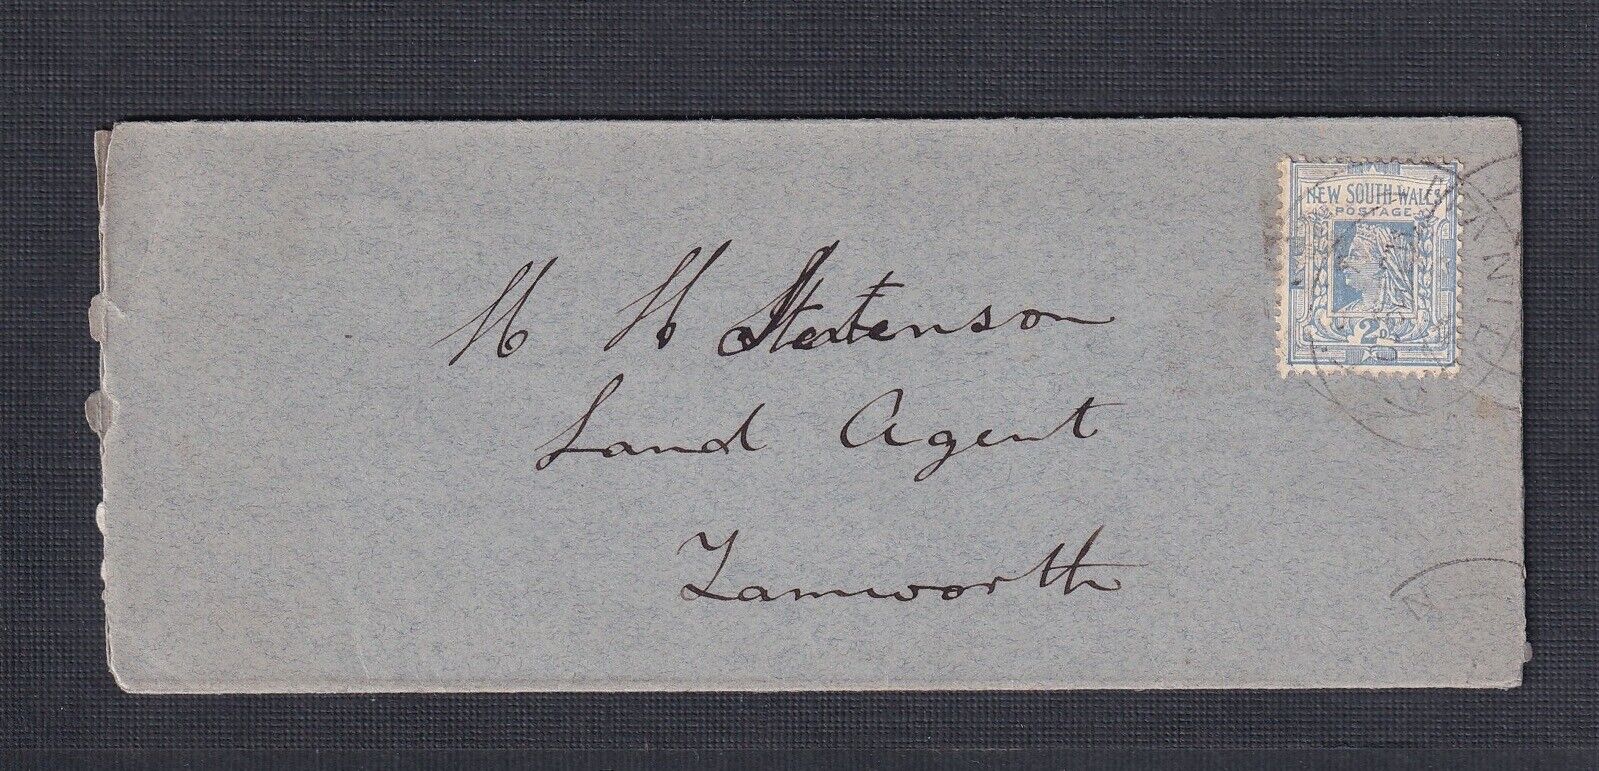 NEW SOUTH WALES
POSTAGE
2D
H H Stertenson
Land Agent
Tamworth
N